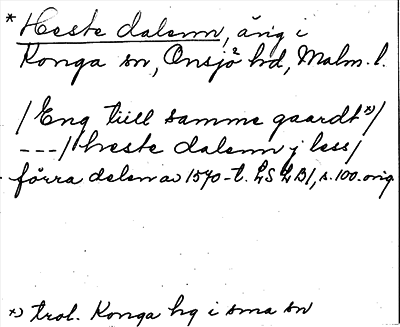 * Heste dalenn, äng i
Konga sn, Onsjö hd, Malm. l.
/Eng tiill samme gaardt *)/
---/heste dalenn j less/
förra delen av 1570-t. LS LB1, s.100. orig
*) trol. Konga hg i sma sn